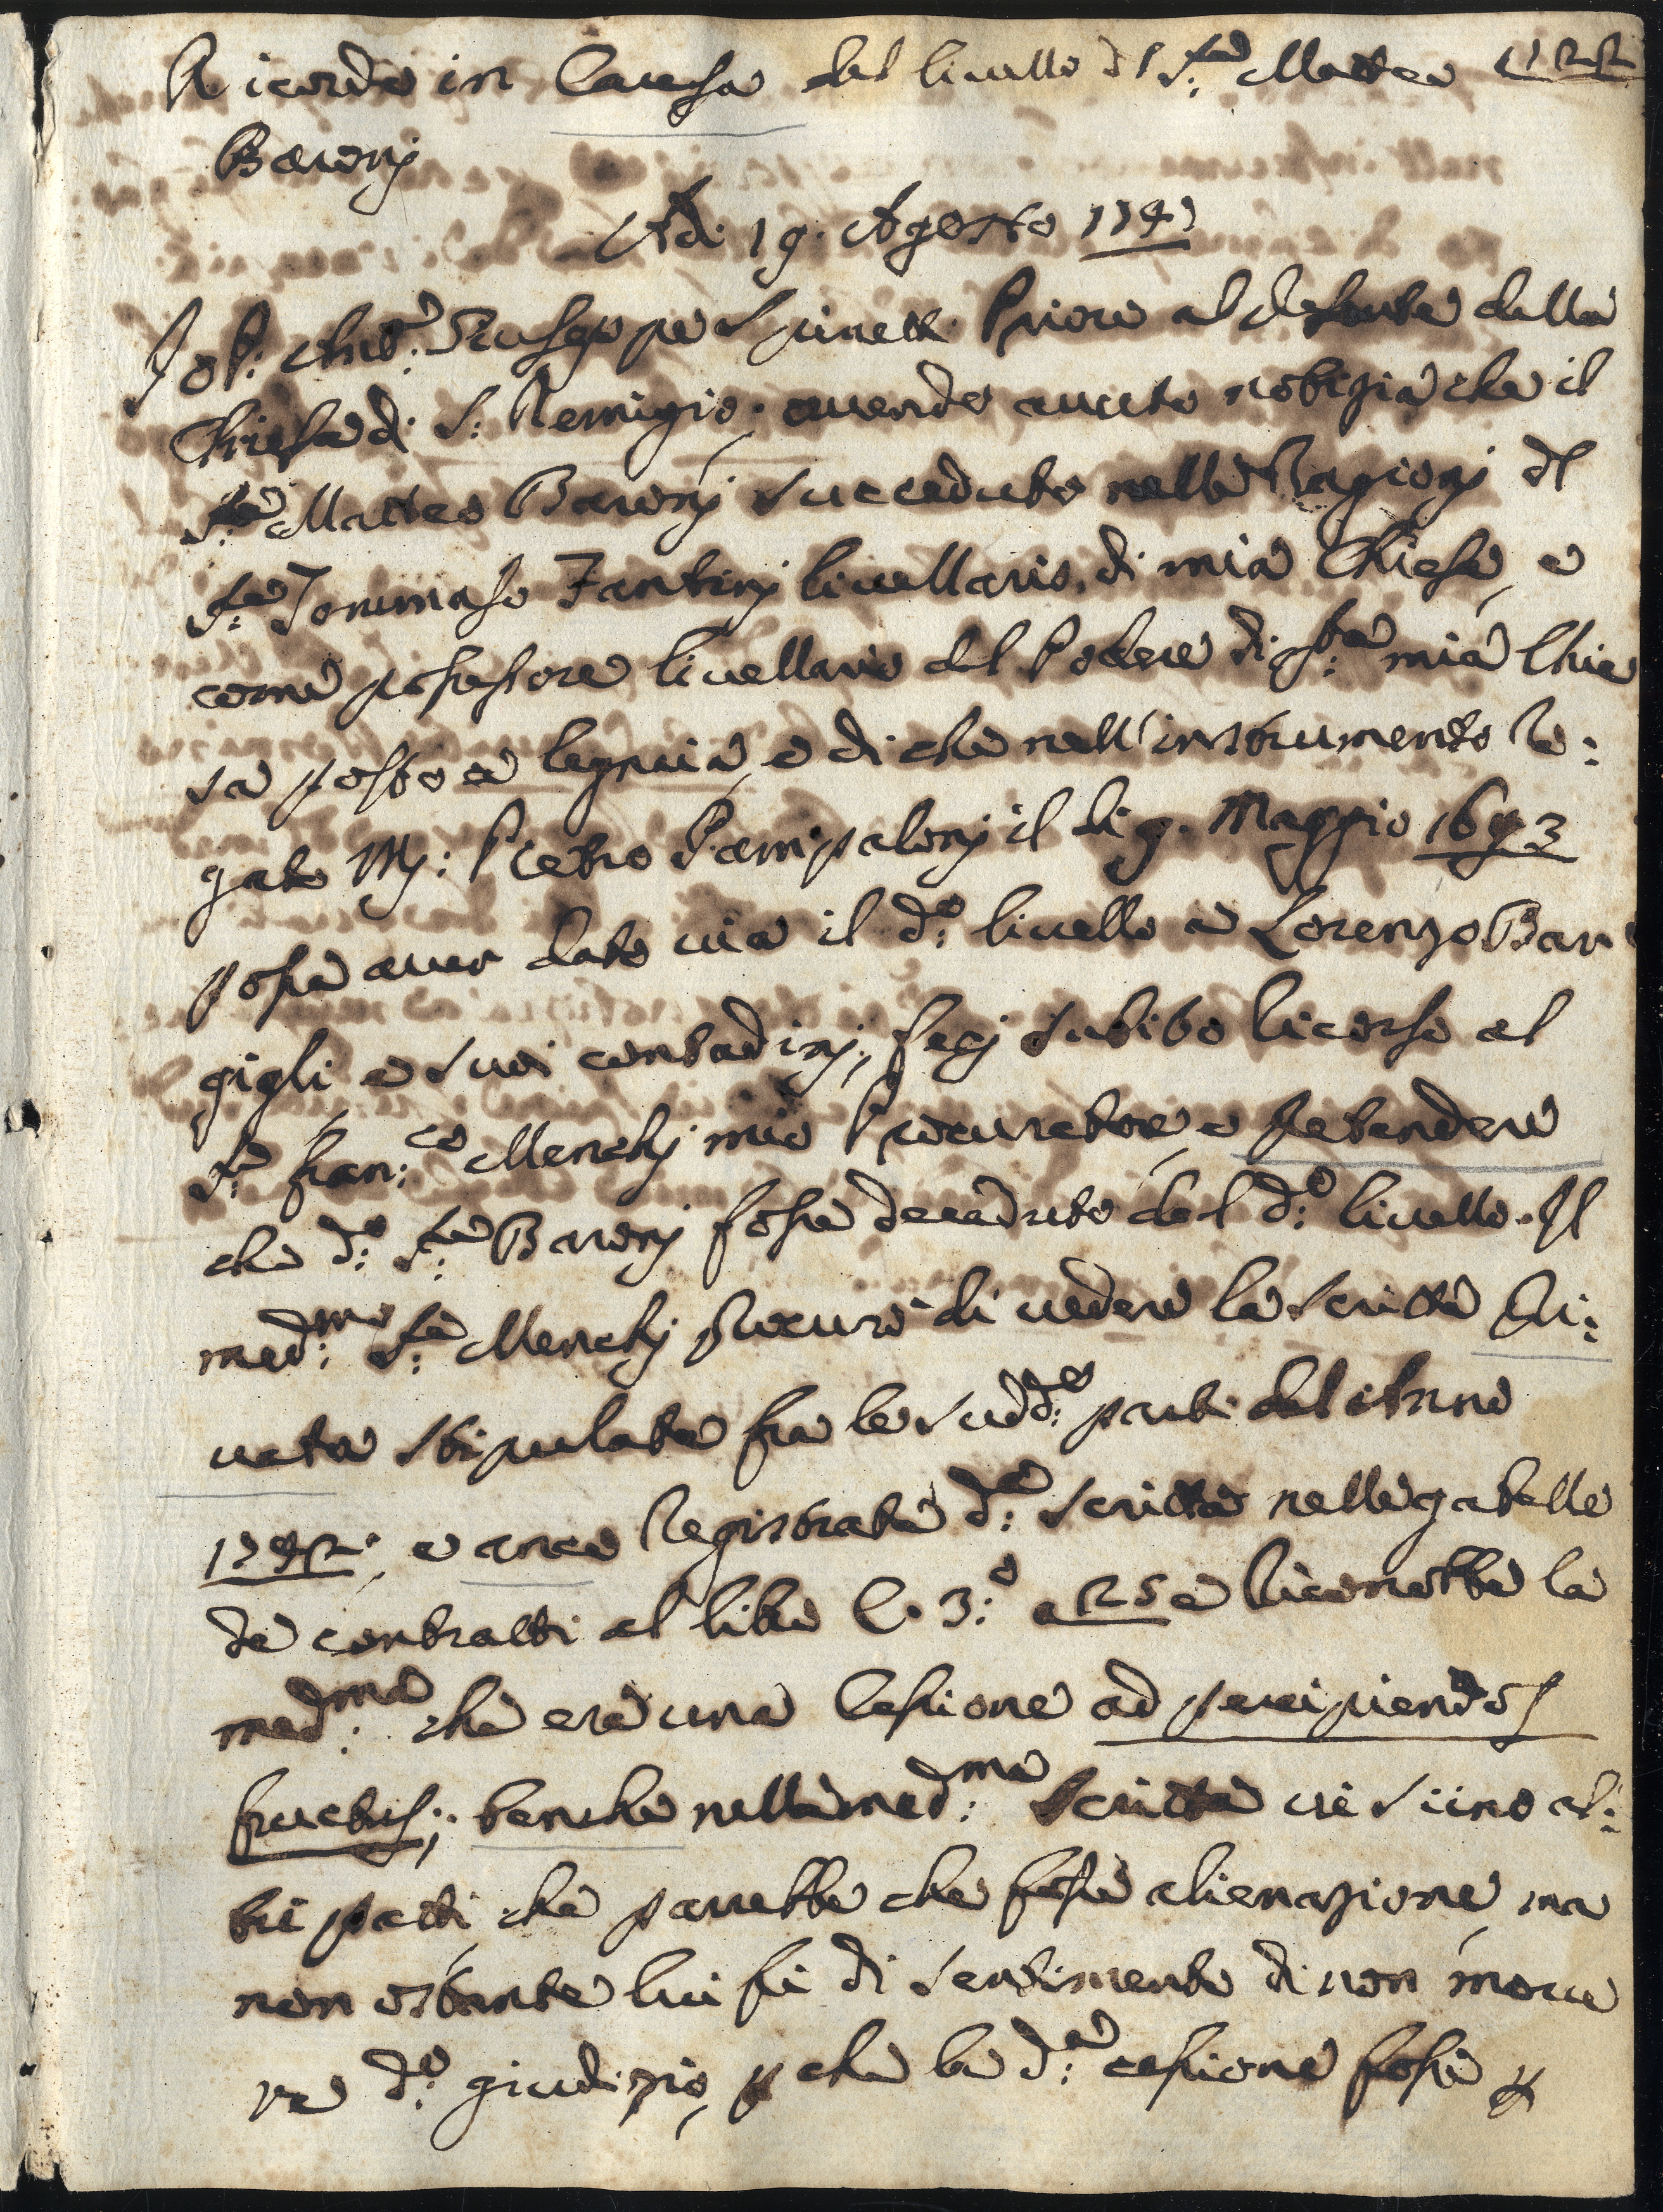 Ricordo in Causa del livello dl S:re Matteo
Baronj
Adi 19. Agosto 1747
Io P: Ant:o Giuseppe Spinetti Priore al presente della
Chiesa di S: Remigio; avendo avuto notizia che il
S:re Matteo Baronj succeduto nelle Ragionj dl
S:re Tommaso Fantinj livellario, di mia Chiesa, e
come possessore livellario del Podere di d:ta mia Chie
sa posto a legnaia, e di che nell'instrumento Ro:
gato M: Pietro Pampalonj il di 9. Maggio 1693
possa aver dato via il d:o livello a Lorenzo Bar
gigli e suoi contadinj; fecj subito Ricorso al
S:re Fran:co Menchj mio Procuratore, e Pretendere
che d:o S:re Baronj fosse decaduto dal d:o livello. Il
med:mo S:re Menchj Procurò di vedere la scritta Pri:
vata stipulata fra le sudd:e parti dal Anno
e anco Registrata d:a scritta nelle gabelle
de contratti al libro C. 3:o a 25 e Riconobbe la
med:ma che era una Cessione ad percipiendos
fructus; benche nella med:ma scritta vi siino al:
tri patti che parrebbe che fosse alienazione, ma
non ostante lui fù di sentimento di non move
re d:o giudizio, p che la d:a cessione fosse p